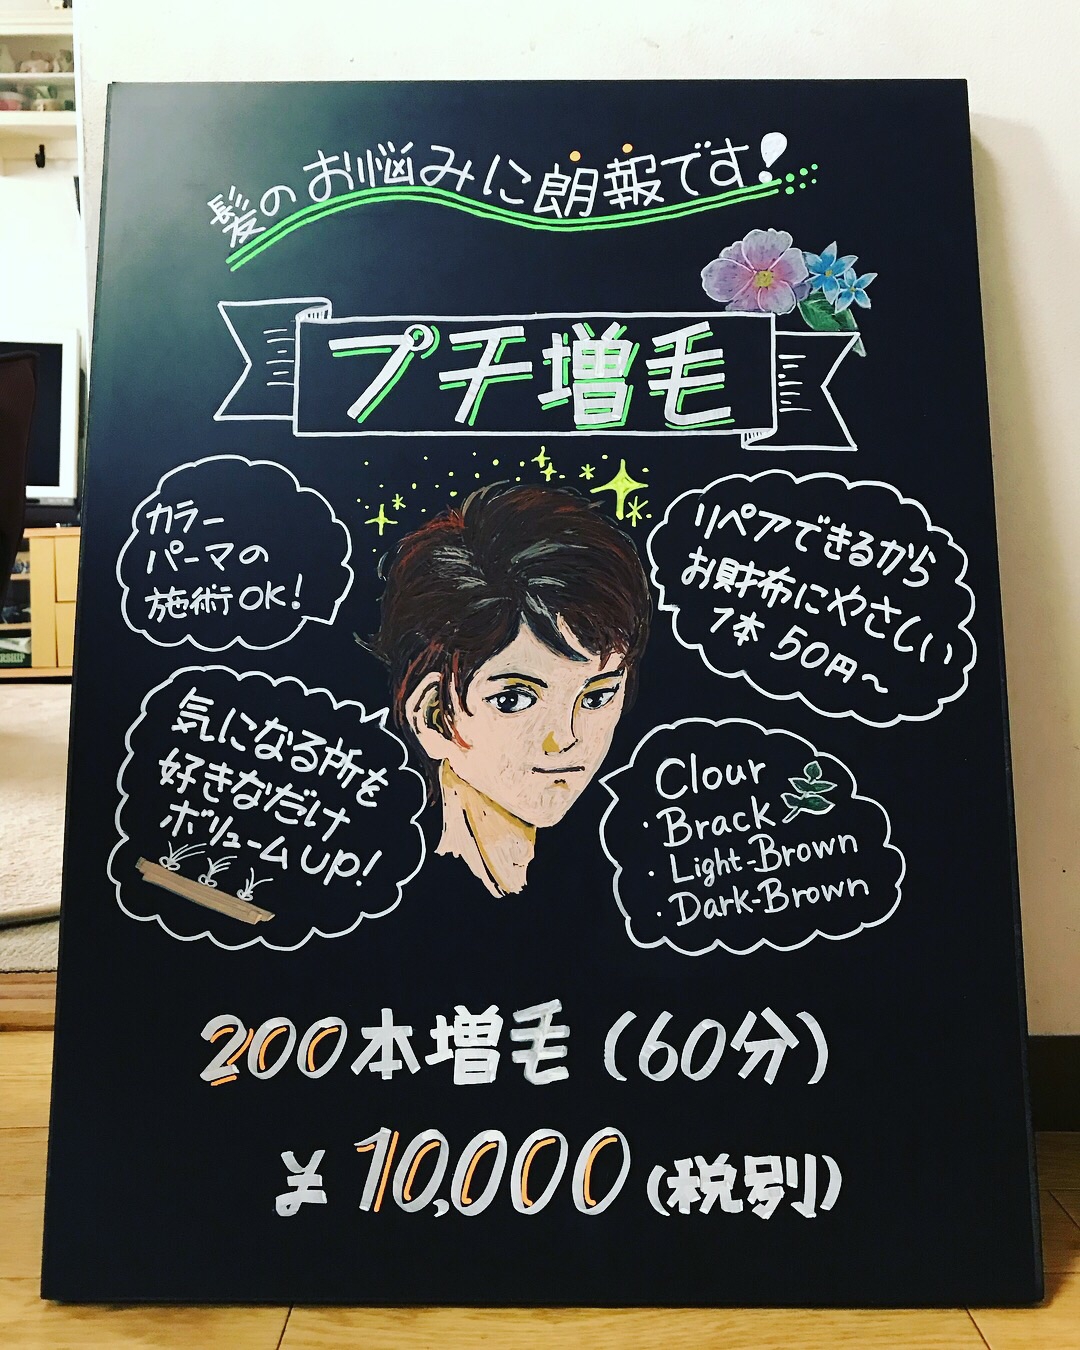 髪のお悩みに朗報です!
プチ増毛
カラー
パーマの
施術OK!
リペアできるから
お財布にやさしい
1本 50円〜
気になる所を
好きなだけ
ボリュームUP!
Clour
・Brack
・Light-Brown
・Dark-Brown
200本増毛(60分)
¥10,000(税別)